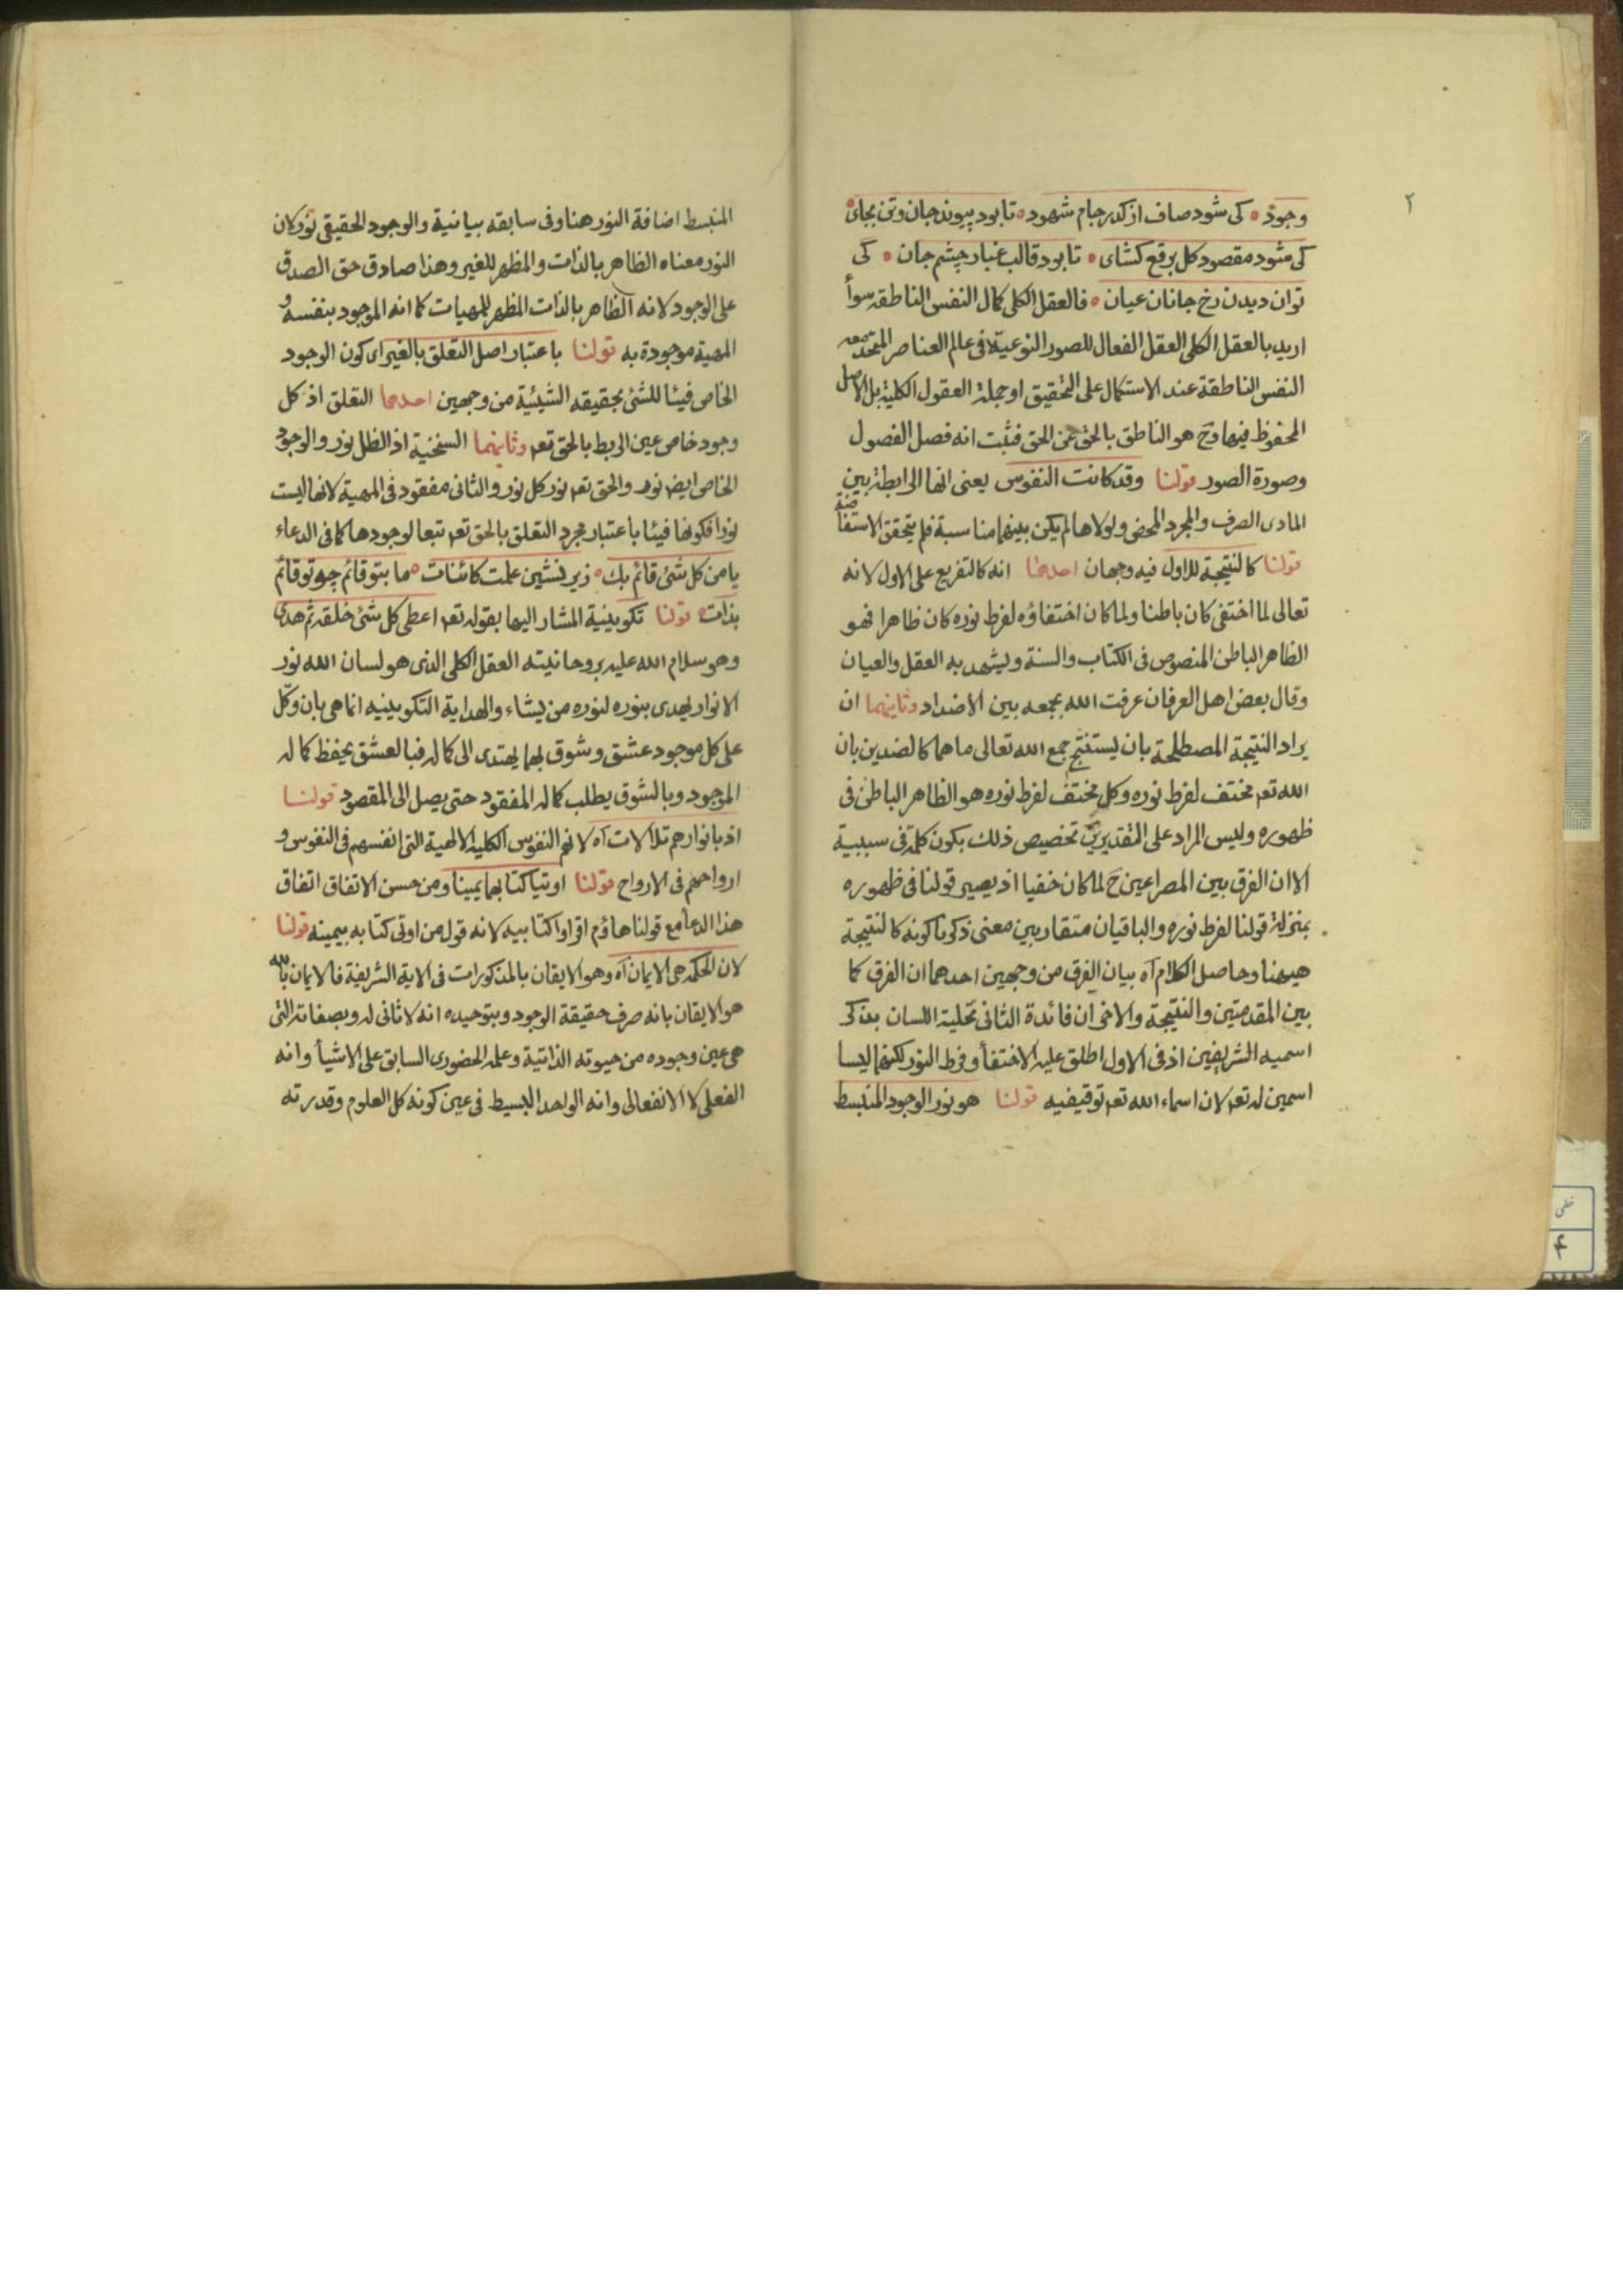 ٢
وجود ° کی شود صاف از کدر جام شهود ° تا بود پیوند جان و تن بجای °
کی شود مقصود کل برقع کشای ° تا بود قالب غبار چشم جان ° کی
توان دیدن رخ جانان عیان ° فالعقل الکلی کمال النفس الناطقه سوأ
ارید بالعقل الکلی العقل الفعال للصور النوعیة فی عالم العناصر المتحد معه
النفس الناطقة عند الاستکمال علی التحقیق او جملة العقول الکلیة بل الاصل
المحفوظ فیها وح هو الناطق بالحق عن الحق فثبت انه فصل الفصول
وصورة الصور قولنا وقد کانت النفوس یعنی انها الرابطة بین
المادی الصرف والمجرد المحض ولولاها لم یکن بینهما مناسبة فلم یتحقق الاستفاضة
قولنا کالنتیجة للاول فیه وجهان احدهما انه کالتفریع علی الاول لانه
تعالی لما اختفی کان باطنا ولما کان اختفاؤه لفرط نوره کان ظاهرا فهو
الظاهر الباطن المنصوص فی الکتاب والسنة ویشهد به العقل والعیان
وقال بعض اهل العرفان عرفت الله بجمعه بین الاضداد وثانیهما ان
یراد النتیجة المصطلحة بان یستنتج جمع الله تعالی ما هما کالضدین بان
الله تعہ مختف لفرط نوره وکل مختف لفرط نوره هو الظاهر الباطن فی
ظهوره ولیس المراد علی التقدیرین تخصیص ذلك بکون کلمة فی سببیة
الا ان الفرق بین المصراعین ح لما کان خفیا اذ یصیر قولنا فی ظهوره
بمنزلة قولنا لفرط نوره والباقیان متقاربین معنی ذکرنا کونه کالنتیجة
هیهنا وحاصل الکلام آه بیان الفرق من وجهین احدهما ان الفرق کما
بین المقدمتین والنتیجة والاخر ان فائدة الثانی تحلیة اللسان بذکر
اسمیه الشریفین اذ فی الاول اطلق علیه الاختفأ وفرط النور لکنهما لیسا
اسمین له تعہ لان اسماء الله تعہ توقیفیه قولنا هو نور الوجود المنبسط
المنبسط اضافة النور هنا وفی سابقه بیانیة والوجود الحقیقی نور لان
النور معناه الظاهر بالذات والمظهر للغیر وهذا صادق حق الصدق
علی الوجود لانه الظاهر بالذات المظهر للمهیات کما انه الموجود بنفسه و
المهیة موجودة به قولنا باعتبار اصل التعلق بالغیر ای کون الوجود
الخاص فیئا للشئ بحقیقه الشیئیة من وجهین احدهما التعلق اذ کل
وجود خاص عین الربط بالحق تعہ وثانیهما السنخیة اذ الظل نور والوجود
الخاص ایض نور والحق تعہ نور کل نور والثانی مفقود فی المهیة لانها لیست
نورا فکونها فیئا باعتبار مجرد التعلق بالحق تعہ تبعا لوجودها کما فی الدعاء
یا من کل شئ قائم بك ° زیر نشین علمت کائنات ° ما بتو قائم چو تو قائم
بذات ° قولنا تکوینیة المشار الیها بقوله تعہ اعطی کل شئ خلقه ثم هدی
وهو سلام الله علیه بروحانیته العقل الکلی الذی هو لسان الله نور
الانوار یهدی بنوره لنوره من یشاء والهدایة التکوینیه انما هی بان وکّل
علی کل موجود عشق وشوق بهما یهتدی الی کماله فبالعشق یحفظ کماله
الموجود وبالشوق یطلب کماله المفقود حتی یصل الی المقصود قولنا
اذ بانوارهم تلالات آه لانهم النفوس الکلیة الالهیة التی انفسهم فی النفوس و
ارواحهم فی الارواح قولنا اوتیا کتابهما یمینا ومن حسن الاتفاق اتفاق
هذا الدعأ مع قولنا هاؤم اقرأوا کتابیه لانه قول من اوتی کتابه بیمینه قولنا
لان الحکمة هی الایمان آه وهو الایقان بالمذکورات فی الایة الشریفة فالایمان بالله
هو الایقان بانه صرف حقیقة الوجود وبتوحیده انه لا ثانی له وبصفاته التی
هی عین وجوده من حیوته الذاتیة وعلمه الحضوری السابق علی الاشیأ وانه
الفعلی لا الانفعالی وانه الواحد البسیط فی عین کونه کل العلوم وقدرته
خطی
۴